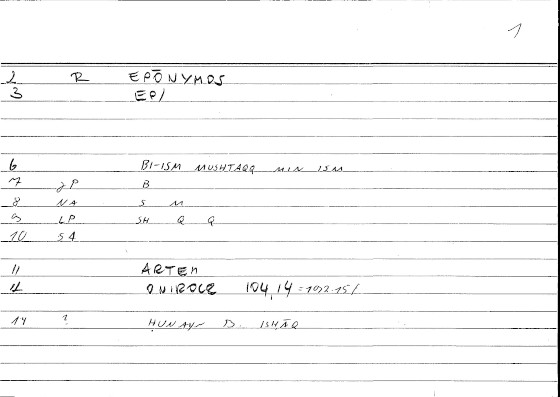 1
2 R EPŌNYMOS
3 EPI
6 BI-ISM MUSHTAQQ MIN ISM
7 2P B
8 NA S M
9 LP SH Q Q
10 SA
11 ARTEM
12 ONIROCR 104,14 =192 15/
14 ? ḤUNAYN B. ISḤĀQ